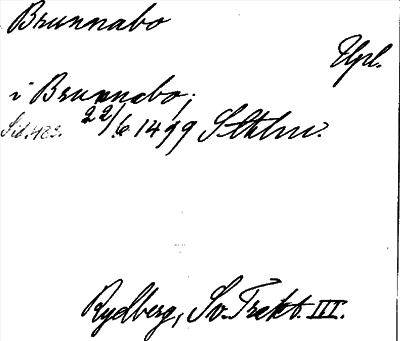 Brunnabo
Upl.
i Brunnabo;
Sid. 423. 22/6 1499 Sthlm.
Rydberg, Sv. Trakt. III.